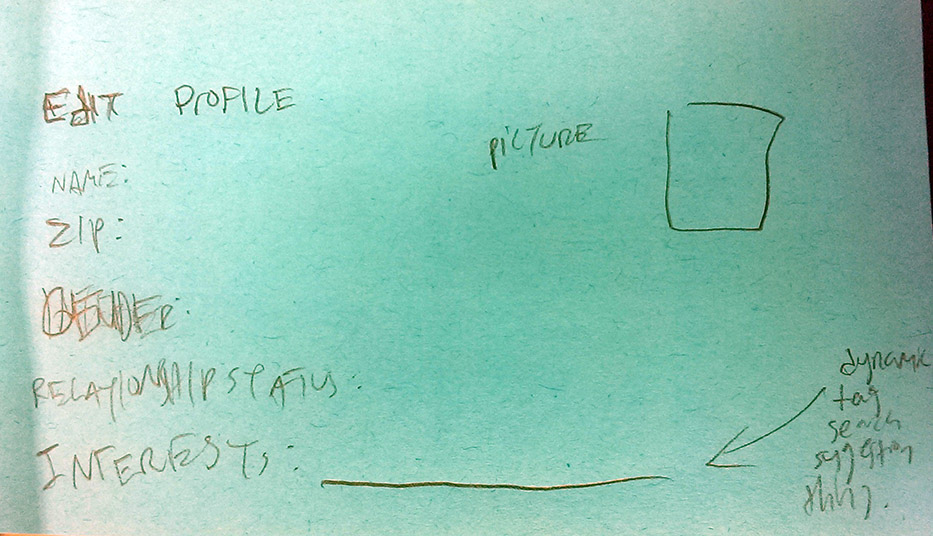 EDIT PROFILE
PICTURE
NAME:
ZIP:
GENDER:
RELATIONSHIP STATUS:
INTERESTS:
dynamic
tag
search
suggestion
thing.